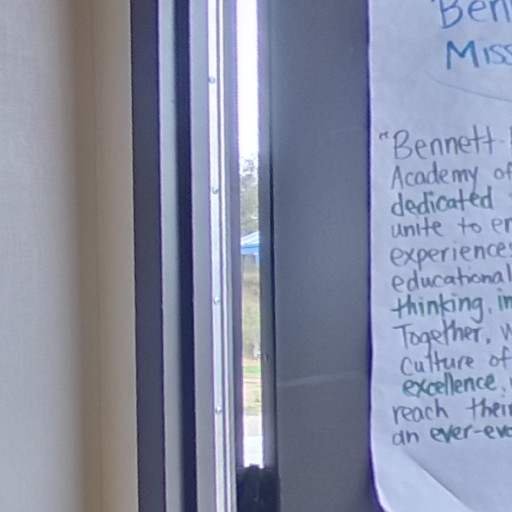 Ben
Miss
"Bennett
Academy of
dedicated
unite to en
experiences
educational
thinking, in
Together, w
culture of
excellence,
reach their
an ever-evo